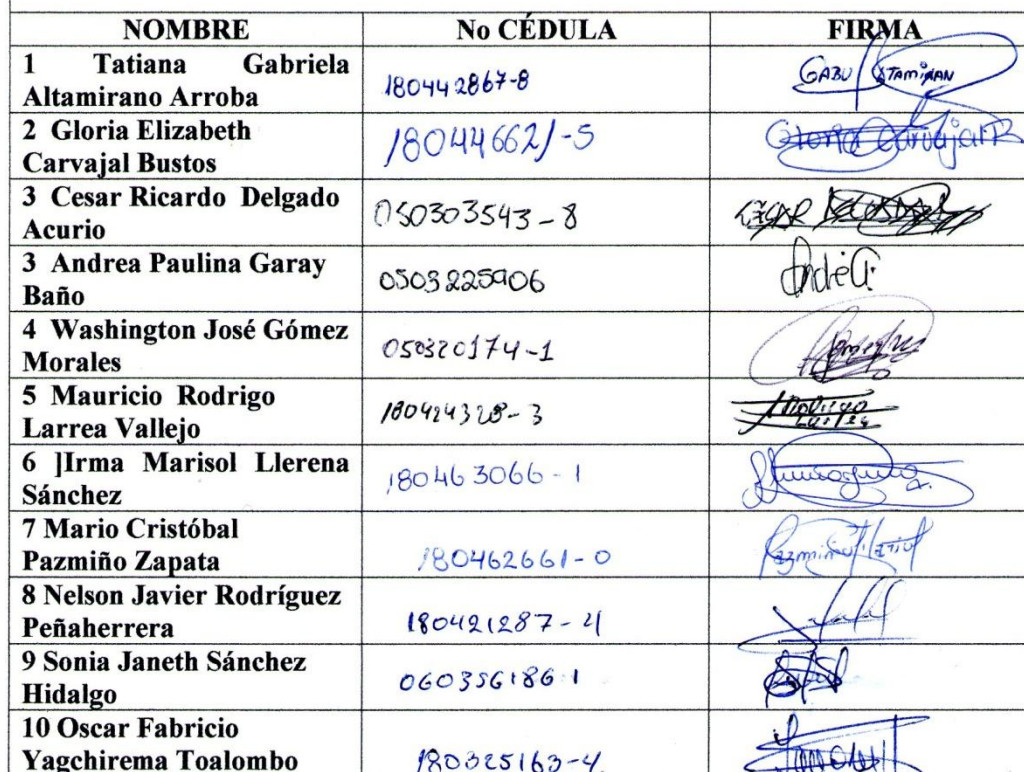 NOMBRE No CÉDULA FIRMA
1 Tatiana Gabriela
Altamirano Arroba 180442867-8
2 Gloria Elizabeth
Carvajal Bustos 180446621-5
3 Cesar Ricardo Delgado
Acurio 050303543-8
3 Andrea Paulina Garay
Baño 0503225906
4 Washington José Gómez
Morales 050320174-1
5 Mauricio Rodrigo
Larrea Vallejo
6 ]Irma Marisol Llerena
Sánchez 180463066-1
7 Mario Cristóbal
Pazmiño Zapata 180462661-0
8 Nelson Javier Rodríguez
Peñaherrera 180421287-4
9 Sonia Janeth Sánchez
Hidalgo 060356186-1
10 Oscar Fabricio
Yagchirema Toalombo 180325163-4